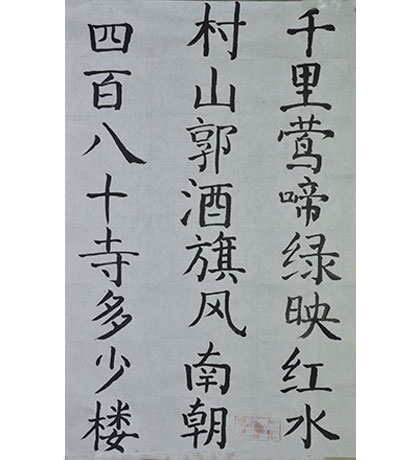 千里莺啼绿映红水
村山郭酒旗风南朝
四百八十寺多少楼